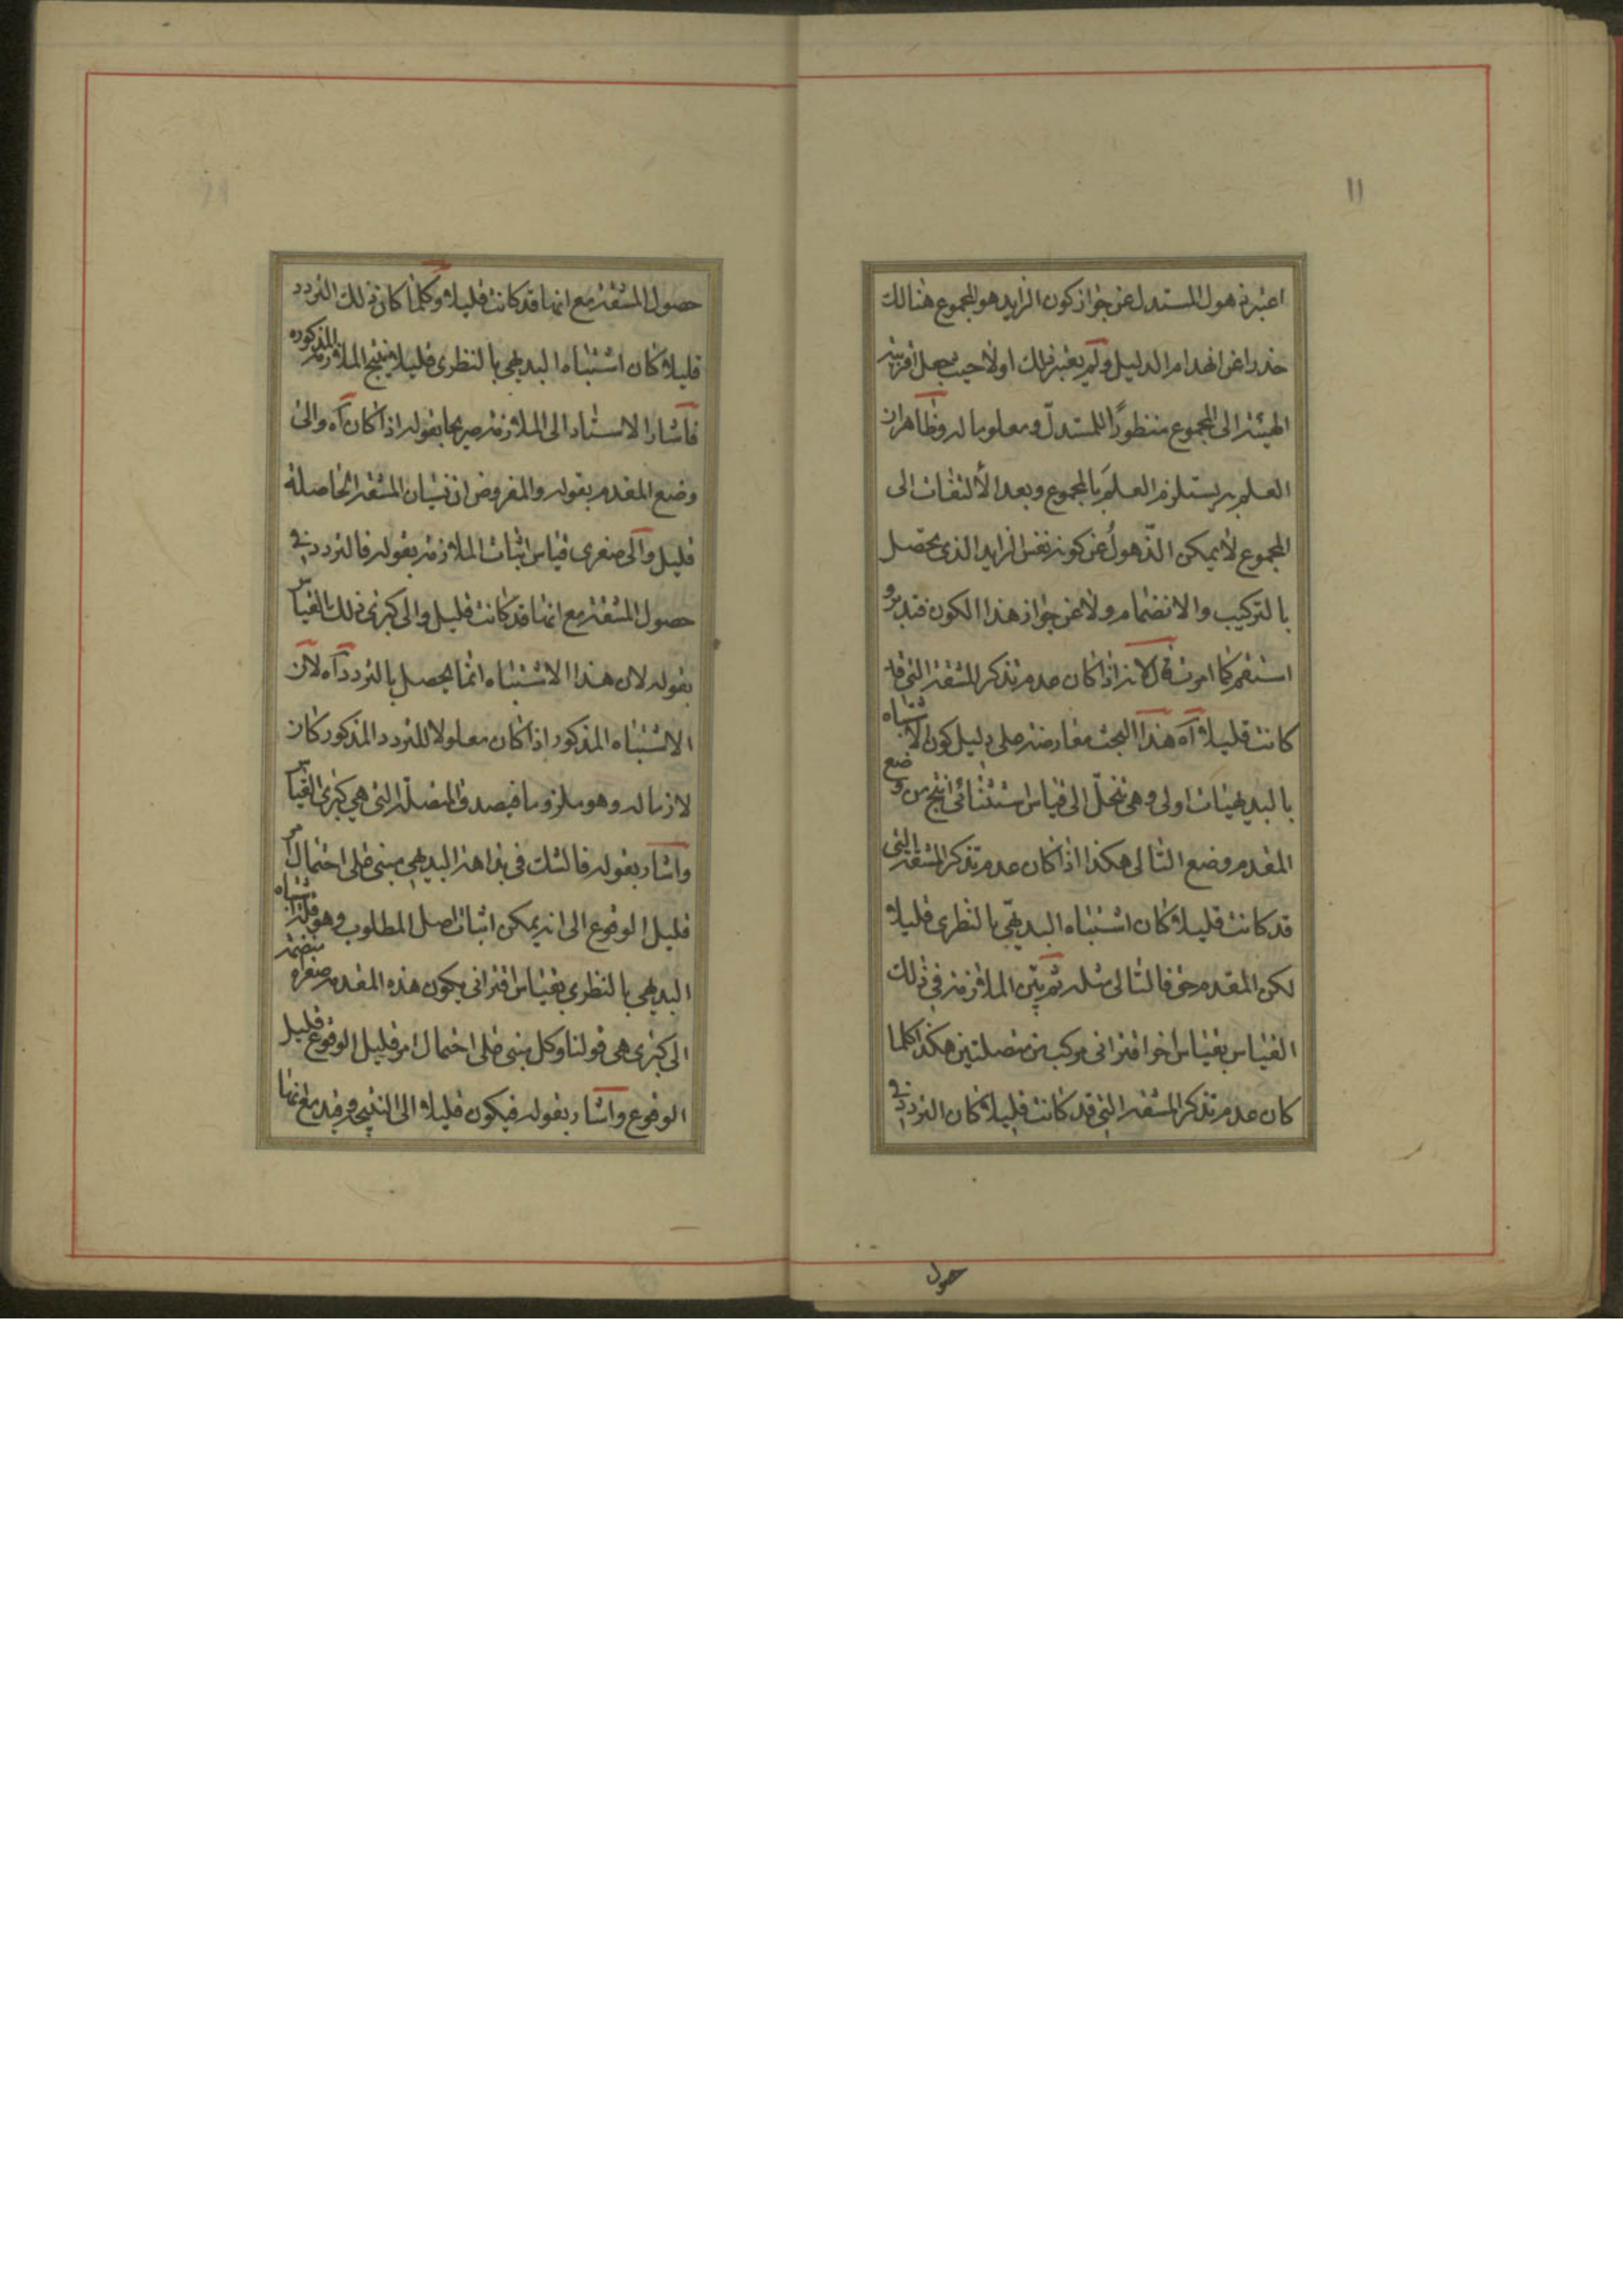 ١١
اعتبر ذهول المستدل عن جواز كون الزايد هو المجموع هنالك
حذرا عن انهدام الدليل ولم يعتبر ذلك اولا حيث جعل
الهيئة الى المجموع منظورًا للمستدلّ ومعلوما له وظاهر ان
العلم به يستلزم العلم بالمجموع وبعد الألتفات الى
المجموع لا يمكن الذّهولُ عن كونه نفس الزايد الذى يحصل
بالتركيب والانضمام ولا عن جواز هذا الكون فتدبر و
استقم كما امرت قال لانه اذا كان عدم تذكر المشقة التى قد
كانت قليلا آه هذا البحث معارضة على دليل كون الاشتباه
بالبديهيات اولى وهى تنحلّ الى قياس استثنائى انتج من وضع
المقدم وضع التالى هكذا اذا كان عدم تذكر المشقة التى
قد كانت قليلا كان اشتباه البديهّى بالنظرى قليلا
لكن المقدم حق فالتالى مثله ثم بيّن الملازمة فى ذلك
القياس بقياس اخر اقترانى مركب من متصلتين هكذا كلما
كان عدم تذكر المشقة التى قد كانت قليلا كان التردد فى
حصول
حصول المشقة مع انها قد كانت قليلا وكلما كان ذلك التردد
قليلا كان اشتباه البديهى بالنظرى قليلا فينتج الملازمة المذكوره
فاشار الاستاد الى الملازمة صريحا بقوله اذا كان آه والى
وضع المقدم بقوله والمفروض ان نسيان المشقة الحاصلة
قليل والى صغرى قياس اثبات الملازمة بقوله فالتردد فى
حصول المشقة مع انها قد كانت قليل والى كبرى ذلك القياس
بقوله لان هذا الاشتباه انما يحصل بالتردد آه لان
الاشتباه المذكور اذا كان معلولا للتردد المذكور كان
لازما له وهو ملزوما فيصدق المتصلة التى هى كبرى القياس
واشار بقوله فالشك فى بداهة البديهى مبنى على احتمال امر
قليل الوقوع الى انه يمكن اثبات اصل المطلوب وهو قلة اشتباه
البديهى بالنظرى بقياس اقترانى يكون هذه المقدمة صغراه منضمة
الى كبرى هى قولنا وكل مبنى على احتمال امر قليل الوقوع قليل
الوقوع واشار بقوله فيكون قليلا الى النتيجة